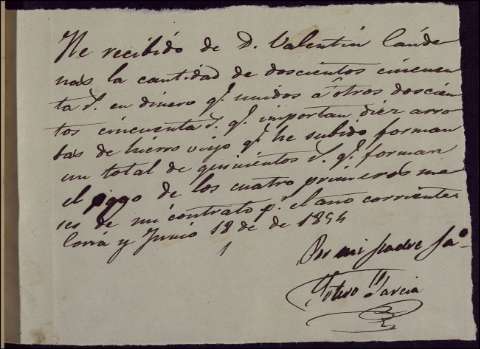 He recibido de D. Valentin Cárde
nas la cantidad de doscientos cincuen
ta r. en dinero q. unidos a otros doscien
tos cincuenta r. q. importan diez arro
bas de hierro viejo q. he subido forman
un total de quinientos r. q. forman
el pago de los cuatro primeros me
ses de mi contrato p. el año corriente
y Junio 18 de de 1854
Por mi padre
Garcia